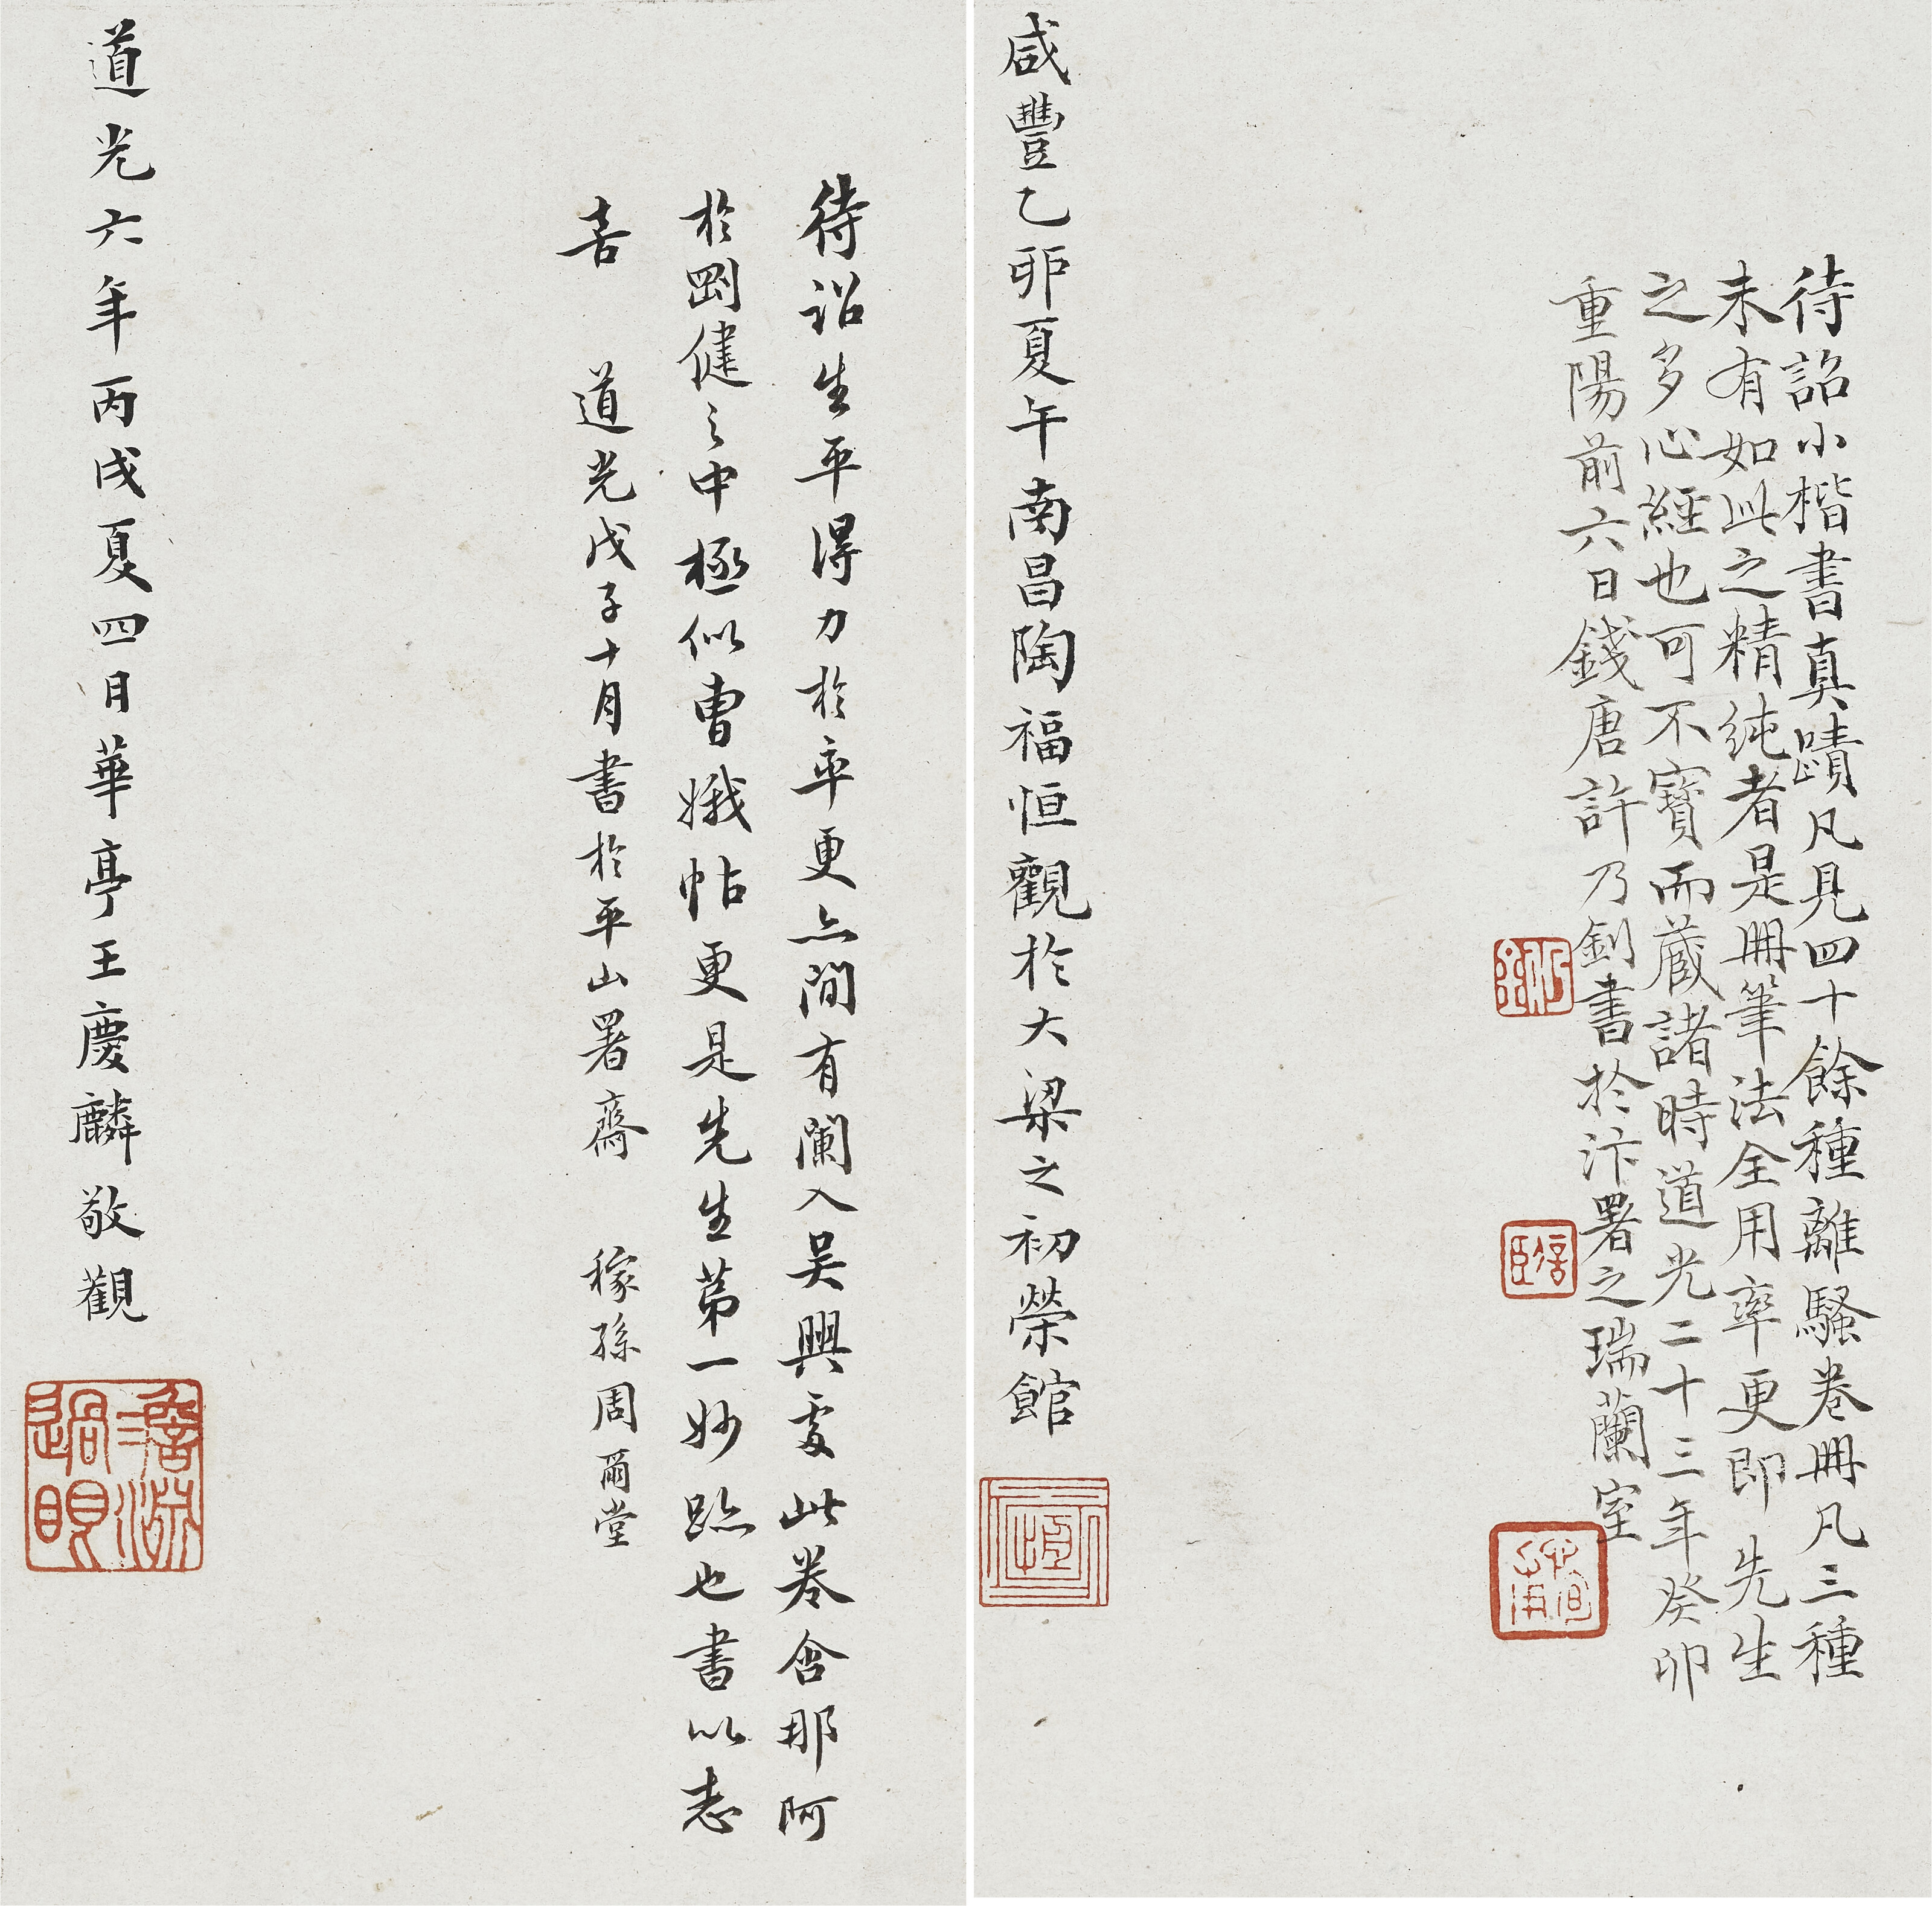 待詔小楷書真蹟凡見四十餘種離騷卷冊凡三種
未有如此之精純者是冊筆法全用率更即先生
之多心經也可不寶而藏諸時道光二十三年癸卯
重陽前六日錢唐許乃釗書於汴署之瑞蘭室
咸豐乙卯夏午南昌陶福恒觀於大梁之初榮館
恒
待詔生平得力於率更亦間有闌入吳興處此卷含那阿
於剛健之中極似曹娥帖更是先生第一妙跡也書以志
喜 道光戊子十月書於平山署齋 稼孫周爾堂
道光六年丙戌夏四月華亭王慶麟敬觀
澹淵過眼